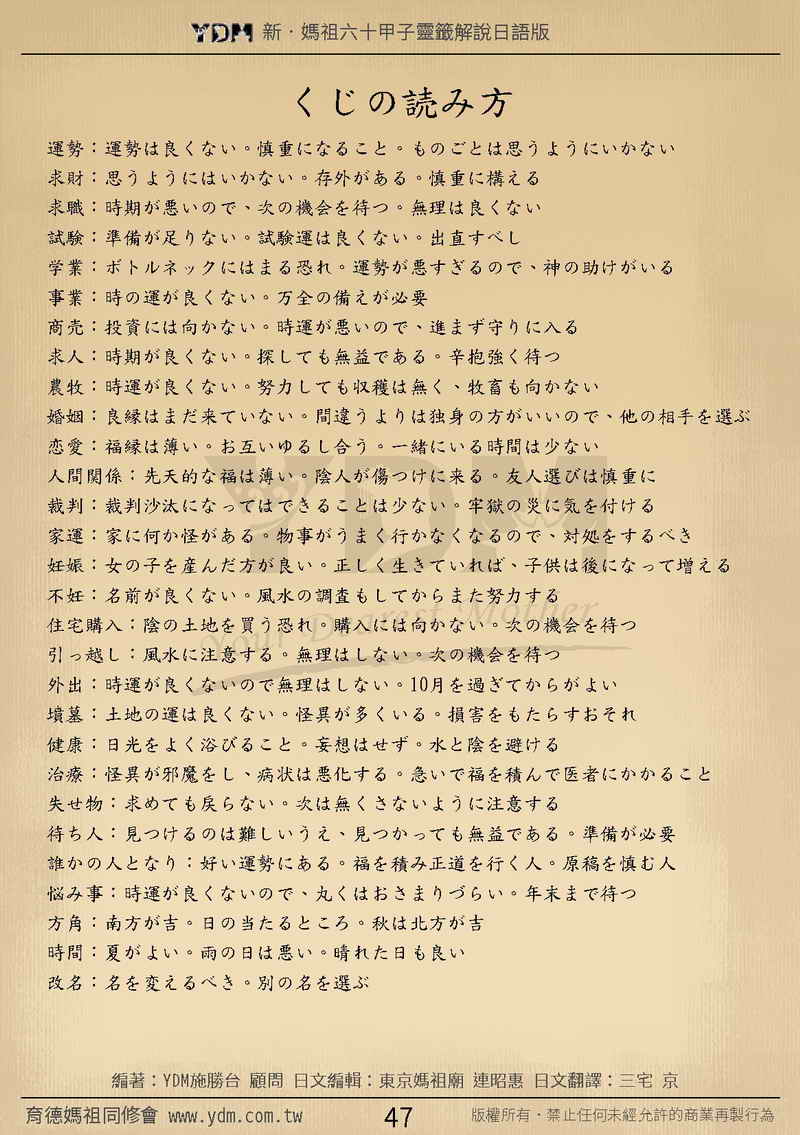 YDM 新・媽祖六十甲子靈籤解說日語版
くじの読み方
運勢：運勢は良くない。慎重になること。ものごとは思うようにいかない
求財：思うようにはいかない。存外がある。慎重に構える
求職：時期が悪いので、次の機会を待つ。無理は良くない
試験：準備が足りない。試験運は良くない。出直すべし
学業：ボトルネックにはまる恐れ。運勢が悪すぎるので、神の助けがいる
事業：時の運が良くない。万全の備えが必要
商売：投資には向かない。時運が悪いので、進まず守りに入る
求人：時期が良くない。探しても無益である。辛抱強く待つ
農牧：時運が良くない。努力しても収穫は無く、牧畜も向かない
婚姻：良縁はまだ来ていない。間違うよりは独身の方がいいので、他の相手を選ぶ
恋愛：福縁は薄い。お互いゆるし合う。一緒にいる時間は少ない
人間関係：先天的な福は薄い。陰人が傷つけに来る。友人選びは慎重に
裁判：裁判沙汰になってはできることは少ない。牢獄の災に気を付ける
家運：家に何か怪がある。物事がうまく行かなくなるので、対処をするべき
妊娠：女の子を産んだ方が良い。正しく生きていれば、子供は後になって増える
不妊：名前が良くない。風水の調査もしてからまた努力する
住宅購入：陰の土地を買う恐れ。購入には向かない。次の機会を待つ
引っ越し：風水に注意する。無理はしない。次の機会を待つ
外出：時運が良くないので無理はしない。10月を過ぎてからがよい
墳墓：土地の運は良くない。怪異が多くいる。損害をもたらすおそれ
健康：日光をよく浴びること。妄想はせず。水と陰を避ける
治療：怪異が邪魔をし、病状は悪化する。急いで福を積んで医者にかかること
失せ物：求めても戻らない。次は無くさないように注意する
待ち人：見つけるのは難しいうえ、見つかっても無益である。準備が必要
誰かの人となり：好い運勢にある。福を積み正道を行く人。原稿を慎む人
悩み事：時運が良くないので、丸くはおさまりづらい。年末まで待つ
方角：南方が吉。日の当たるところ。秋は北方が吉
時間：夏がよい。雨の日は悪い。晴れた日も良い
改名：名を変えるべき。別の名を選ぶ
YDM
Your Dearest Mother
編著：YDM施勝台 顧問 日文編輯：東京媽祖廟 連昭惠 日文翻譯：三宅 京
育德媽祖同修會 www.ydm.com.tw 47 版權所有・禁止任何未經允許的商業再製行為